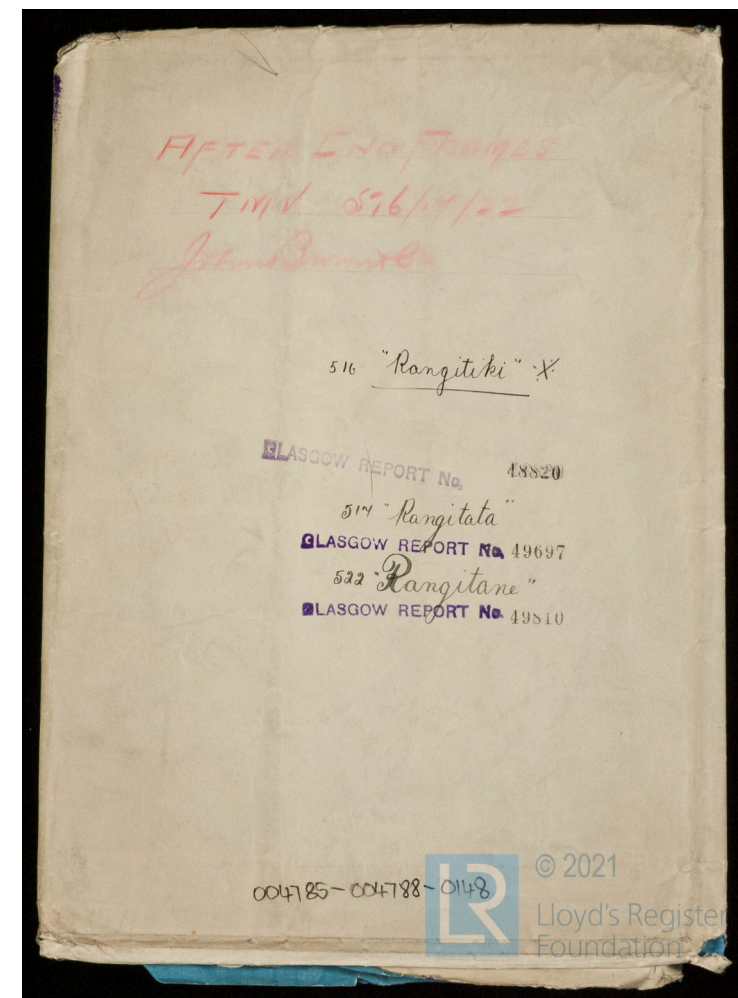 AFTER END FRAMES
TMV 516/17/22
John Brown & Co
516 "Rangitiki" X
GLASGOW REPORT No. 48820
517 "Rangitata"
GLASGOW REPORT No. 49697
522 "Rangitane"
GLASGOW REPORT No. 49810
004785-004788-0148
LR
© 2021
Lloyd's Register
Foundation